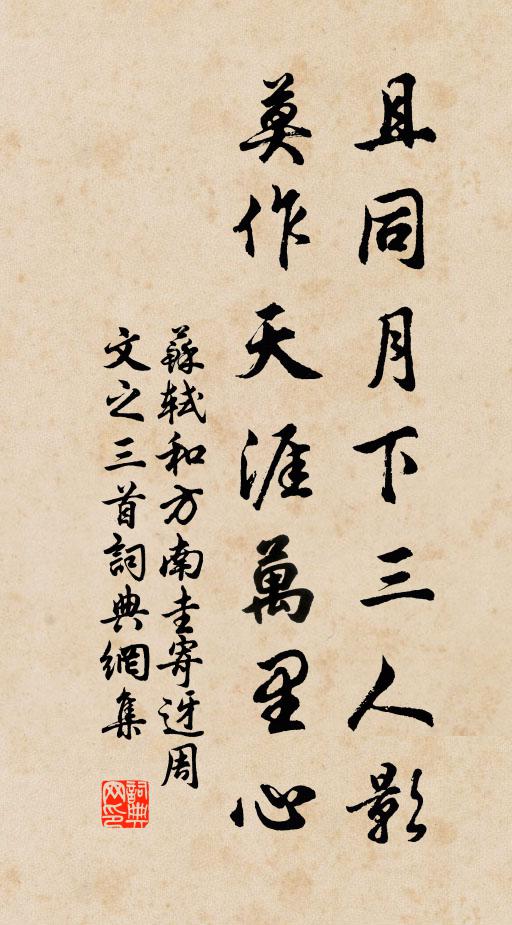 且同月下三人影
莫作天涯萬里心
蘇軾和方南圭寄迓周
文之三首詞典網集
詞典
网印